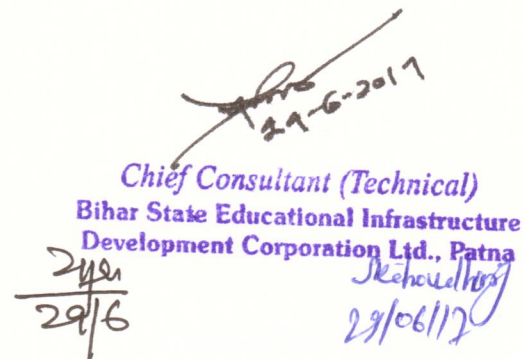 29-6-2017
Chief Consultant (Technical)
Bihar State Educational Infrastructure
Development Corporation Ltd., Patna
29/6
29/06/17